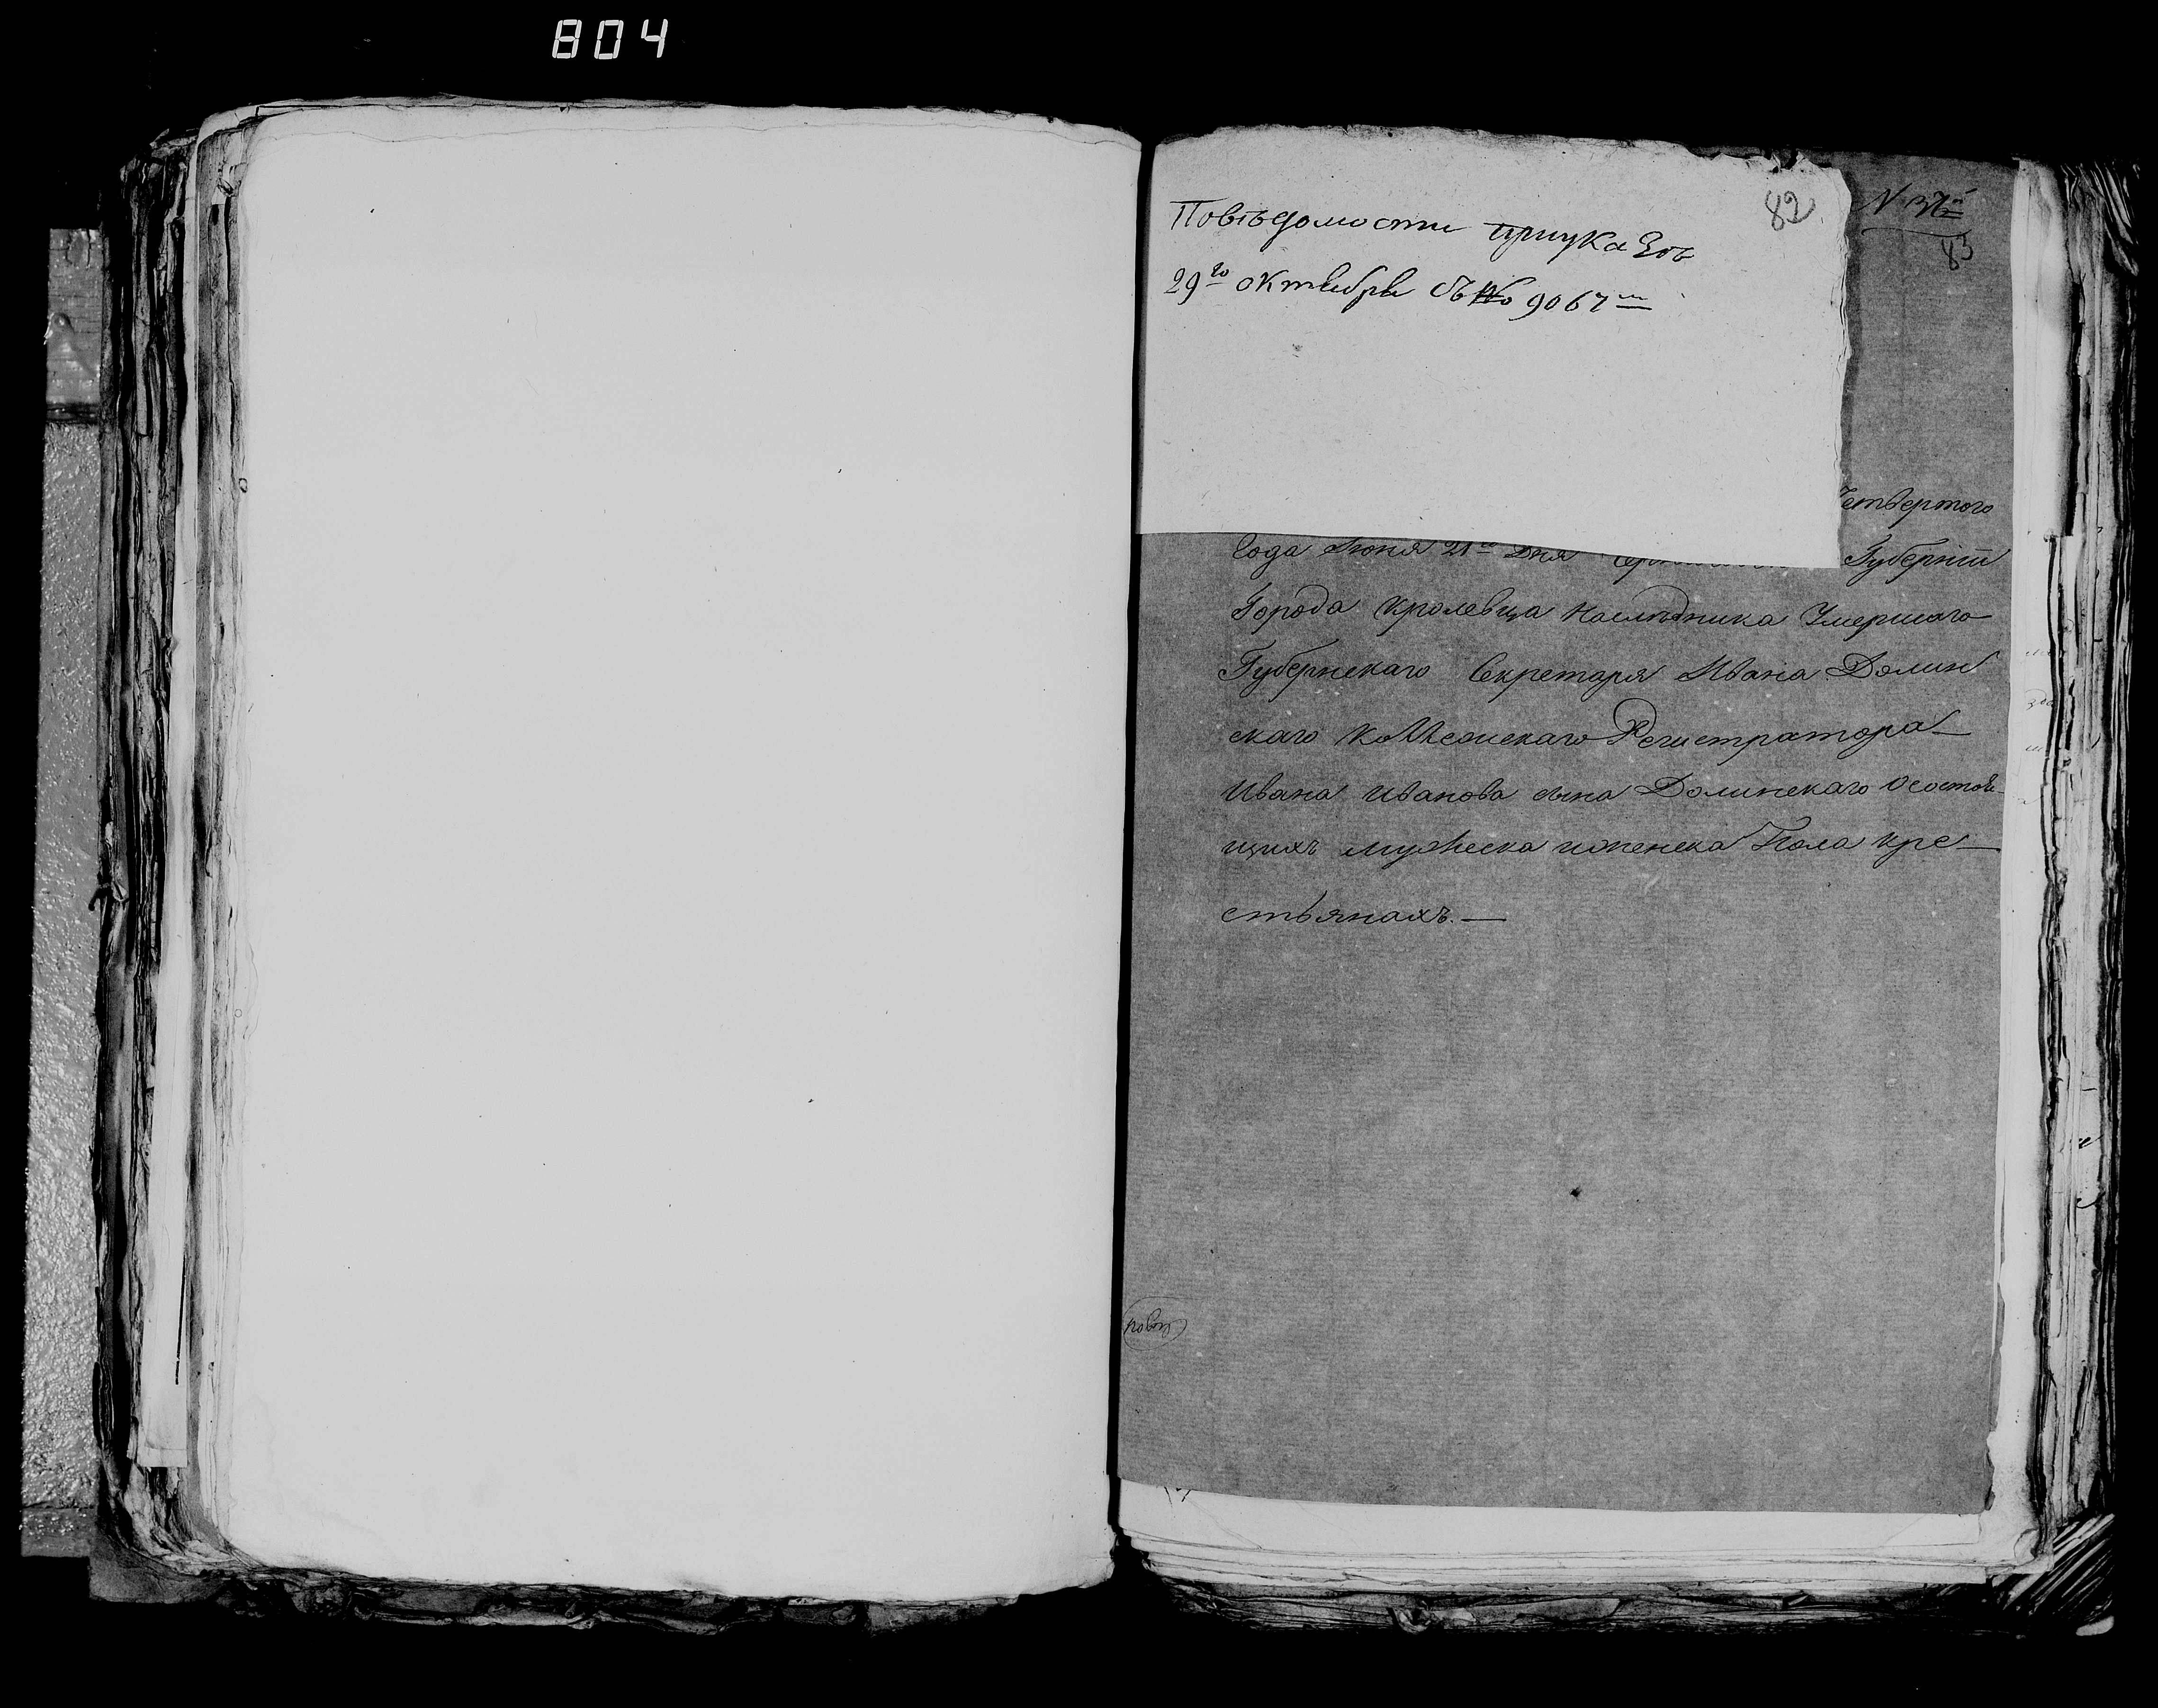 804
82
Повѣдомости приуказѣ
29го октября съ № 9067м
N 37й
83
Четвертого
Года Июня 21го Дня Губернiи
Города Кролевца Наслѣдника Умершаго
Губернскаго Секретаря Ивана Долин
скаго Коллежскаго Регистратора
Ивана Иванова сына Долинскаго Осостоя
щихъ мужеска иженска Пола кре
стьянахъ.